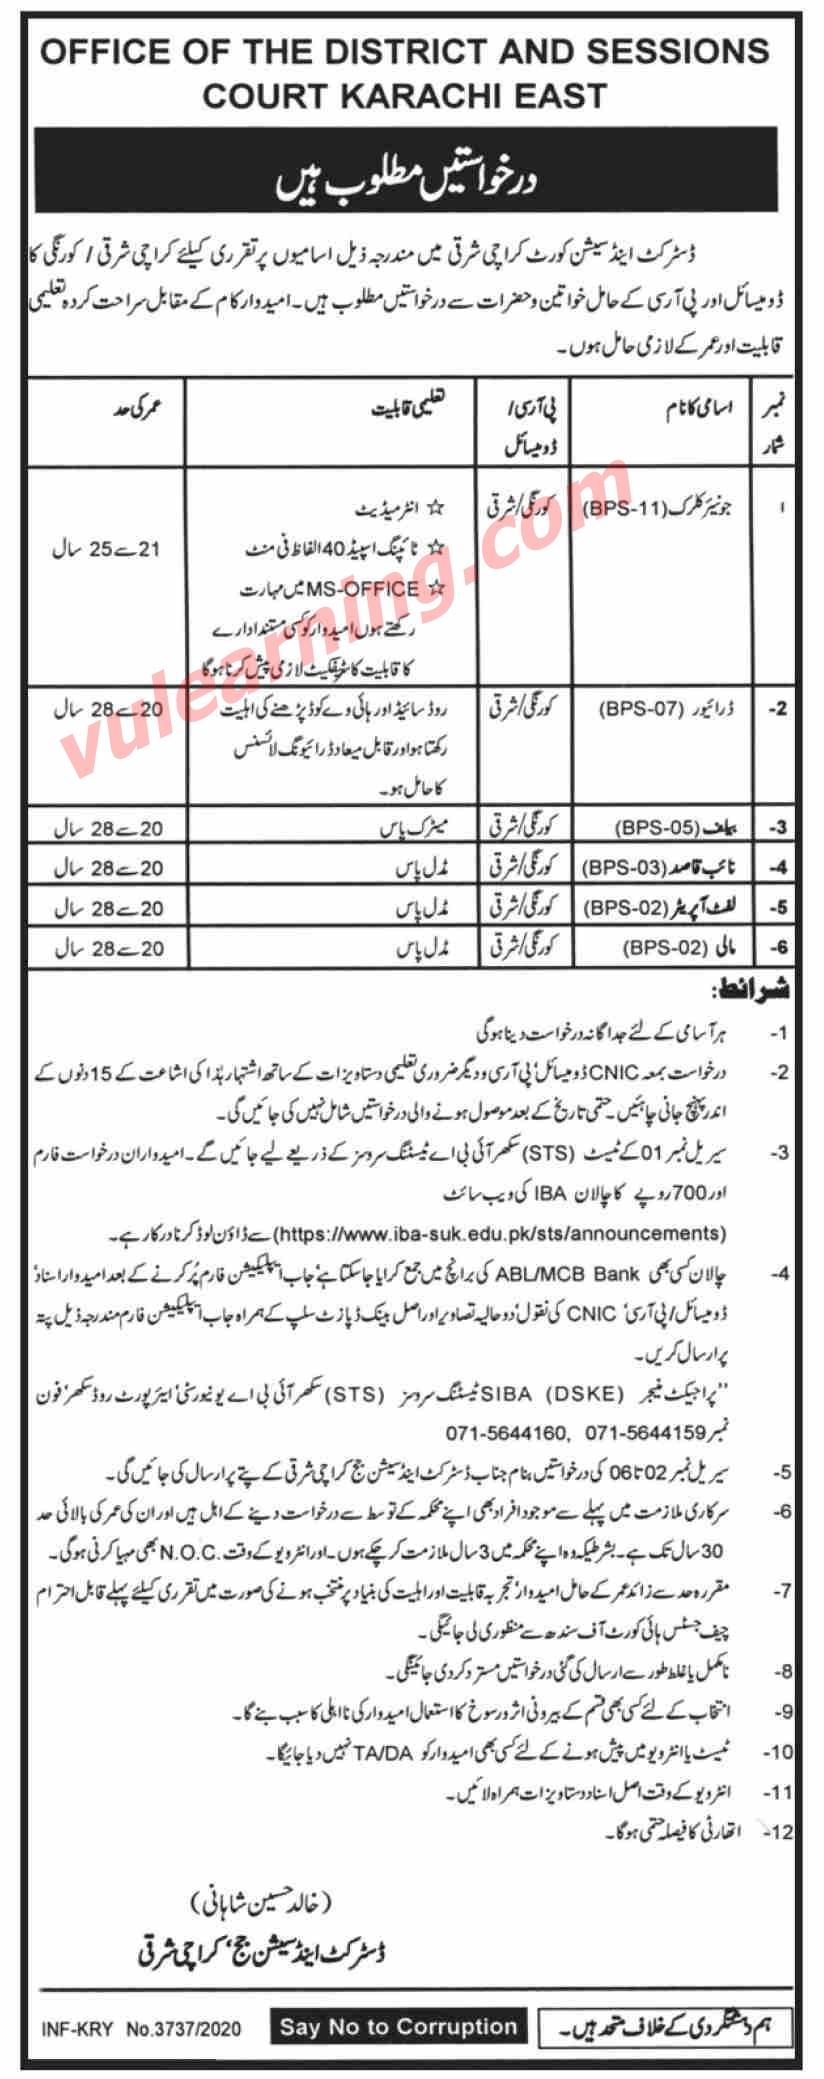 OFFICE OF THE DISTRICT AND SESSIONS
COURT KARACHI EAST
درخواستیں مطلوب ہیں
ڈسٹرکٹ اینڈ سیشن کورٹ کراچی شرقی میں مندرجہ ذیل اسامیوں پر تقرری کیلئے کراچی شرقی / کورنگی کا
ڈومیسائل اور پی آر سی کے حامل خواتین و حضرات سے درخواستیں مطلوب ہیں۔ امیدوار کام کے مقابل سراحت کردہ تعلیمی
قابلیت اور عمر کے لازمی حامل ہوں۔
نمبر شمار | اسامی کا نام | پی آر سی / ڈومیسائل | تعلیمی قابلیت | عمر کی حد
۱ | جونیئر کلرک (BPS-11) | کورنگی/شرقی | ☆ انٹرمیڈیٹ
☆ ٹائپنگ اسپیڈ 40 الفاظ فی منٹ | 21 سے 25 سال
☆ MS-OFFICE میں مہارت
رکھتے ہوں امیدوار کو کسی مستند ادارے
کا قابلیت کا سرٹیفکیٹ لازمی پیش کرنا ہوگا
2- | ڈرائیور (BPS-07) | کورنگی/شرقی | روڈ سائیڈ اور ہائی وے کوڈ پڑھنے کی اہلیت | 20 سے 28 سال
رکھتا ہو اور قابل میعاد ڈرائیونگ لائسنس
کا حامل ہو۔
3- | بیلف (BPS-05) | کورنگی/شرقی | میٹرک پاس | 20 سے 28 سال
4- | نائب قاصد (BPS-03) | کورنگی/شرقی | مڈل پاس | 20 سے 28 سال
5- | لفٹ آپریٹر (BPS-02) | کورنگی/شرقی | مڈل پاس | 20 سے 28 سال
6- | مالی (BPS-02) | کورنگی/شرقی | مڈل پاس | 20 سے 28 سال
vulearning.com
شرائط:
1- ہر آسامی کے لئے جداگانہ درخواست دینا ہوگی
2- درخواست بمعہ CNIC ڈومیسائل' پی آر سی و دیگر ضروری تعلیمی دستاویزات کے ساتھ اشتہار ہٰذا کی اشاعت کے 15 دنوں کے
اندر پہنچ جانی چاہئیں۔ حتمی تاریخ کے بعد موصول ہونے والی درخواستیں شامل نہیں کی جائیں گی۔
3- سیریل نمبر 01 کے ٹیسٹ (STS) سکھر آئی بی اے ٹیسٹنگ سروسز کے ذریعے لیے جائیں گے۔ امیدواران درخواست فارم
اور 700 روپے کا چالان IBA کی ویب سائٹ
(https://www.iba-suk.edu.pk/sts/announcements) سے ڈاؤن لوڈ کرنا درکار ہے۔
4- چالان کسی بھی ABL/MCB Bank کی برانچ میں جمع کرایا جاسکتا ہے' جاب ایپلیکیشن فارم پُر کرنے کے بعد امیدوار اسناد'
ڈومیسائل/پی آر سی' CNIC کی نقول' دو حالیہ تصاویر اور اصل بینک ڈپازٹ سلپ کے ہمراہ جاب ایپلیکیشن فارم مندرجہ ذیل پتہ
پر ارسال کریں۔
"پراجیکٹ منیجر SIBA (DSKE) ٹیسٹنگ سروسز (STS) سکھر آئی بی اے یونیورسٹی' ایئرپورٹ روڈ سکھر' فون
نمبر 071-5644160, 071-5644159
5- سیریل نمبر 02 تا 06 کی درخواستیں بنام جناب ڈسٹرکٹ اینڈ سیشن جج کراچی شرقی کے پتے پر ارسال کی جائیں گی۔
6- سرکاری ملازمت میں پہلے سے موجود افراد بھی اپنے محکمہ کے توسط سے درخواست دینے کے اہل ہیں اور ان کی عمر کی بالائی حد
30 سال تک ہے۔ بشرطیکہ وہ اپنے محکمہ میں 3 سال ملازمت کرچکے ہوں۔ اور انٹرویو کے وقت N.O.C. بھی مہیا کرنی ہوگی۔
7- مقررہ حد سے زائد عمر کے حامل امیدوار' تجربہ قابلیت اور اہلیت کی بنیاد پر منتخب ہونے کی صورت میں تقرری کیلئے پہلے قابل احترام
چیف جسٹس ہائی کورٹ آف سندھ سے منظوری لی جائیگی۔
8- نامکمل یا غلط طور سے ارسال کی گئی درخواستیں مسترد کردی جائینگی۔
9- انتخاب کے لئے کسی بھی قسم کے بیرونی اثر و رسوخ کا استعمال امیدوار کی نااہلی کا سبب بنے گا۔
10- ٹیسٹ یا انٹرویو میں پیش ہونے کے لئے کسی بھی امیدوار کو TA/DA نہیں دیا جائیگا۔
11- انٹرویو کے وقت اصل اسناد دستاویزات ہمراہ لائیں۔
12- اتھارٹی کا فیصلہ حتمی ہوگا۔
(خالد حسین شاہانی)
ڈسٹرکٹ اینڈ سیشن جج' کراچی شرقی
INF-KRY No.3737/2020
Say No to Corruption
ہم دہشتگردی کے خلاف متحد ہیں۔